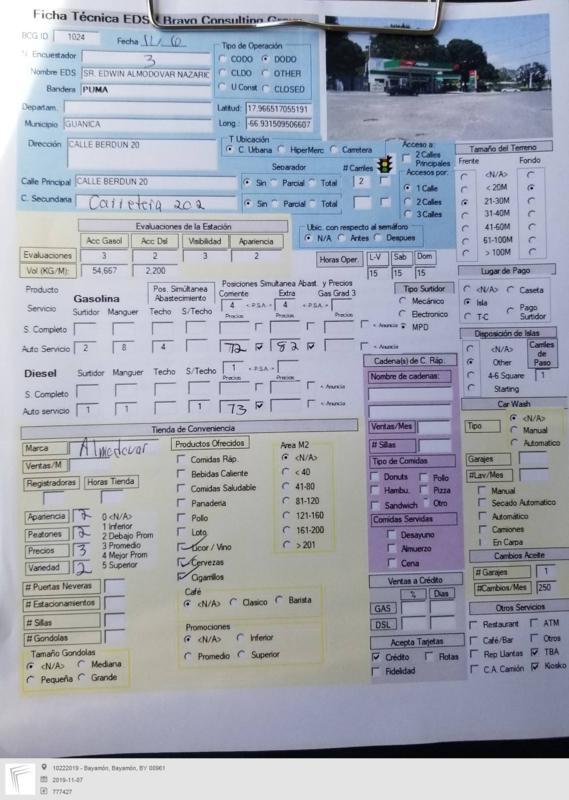 Ficha Técnica EDS Bravo Consulting Group
BCG ID 1024 Fecha
N. Encuestador 3
Nombre EDS SR. EDWIN ALMODOVAR NAZARIC
Bandera PUMA
Tipo de Operación
CODO DODO
CLDO OTHER
U Const CLOSED
Departam.
Municipio GUANICA
Latitud: 17.966517055191
Long.: -66.931509506607
Dirección CALLE BERDUN 20
T Ubicación
C. Urbana HiperMerc Carretera
Separador # Carriles
Calle Principal CALLE BERDUN 20 Sin Parcial Total 2
C. Secundaria Carretera 202 Sin Parcial Total
Acceso a:
2 Calles Principales
Accesos por:
1 Calle
2 Calles
3 Calles
Tamaño del Terreno
Frente Fondo
<N/A>
< 20M
21-30M
31-40M
41-60M
61-100M
> 100M
Evaluaciones de la Estación
Acc Gasol Acc Dsl Visibilidad Apariencia
Evaluaciones 3 2 3 2
Vol (KG/M): 54,667 2,200
Ubic. con respecto al semáforo
N/A Antes Despues
Horas Oper. L-V Sab Dom
15 15 15
Lugar de Pago
<N/A> Caseta
Isla
T-C Pago Surtidor
Producto
Servicio
Gasolina
Surtidor Manguer
Pos. Simúltanea Abastecimiento
Techo S/Techo
Posiciones Simultanea Abast. y Precios
Corriente Extra Gas Grad 3
4 < P.S.A.> 4 < P.S.A.>
Precios Precios Precios
S. Completo < Anuncia
Auto Servicio 2 8 4 72 82
Tipo Surtidor
Mecánico
Electronico
MPD
Disposición de Islas
<N/A>
Other
4-6 Square
Starting
Carriles de Paso
1
Diesel Surtidor Manguer Techo S/Techo 1 < P.S.A.>
Precios
S. Completo < Anuncia
Auto servicio 1 1 1 73 < Anuncia
Cadena(s) de C. Ráp.
Nombre de cadenas:
Ventas/Mes
# Sillas
Tipo de Comidas
Donuts Pollo
Hambu. Pizza
Sandwich Otro
Comidas Servidas
Desayuno
Almuerzo
Cena
Car Wash
Tipo <N/A>
Manual
Automatico
Garajes
#Lav/Mes
Manual
Secado Automatico
Automático
Camiones
En Carpa
Tienda de Conveniencia
Marca Almodovar
Ventas/M
Registradoras Horas Tienda
Apariencia 2
Peatones 2
Precios 3
Variedad 2
0 <N/A>
1 Inferior
2 Debajo Prom
3 Promedio
4 Mejor Prom
5 Superior
# Puertas Neveras
# Estacionamientos
# Sillas
# Gondolas
Tamaño Gondolas
<N/A> Mediana
Pequeña Grande
Productos Ofrecidos
Comidas Ráp.
Bebidas Caliente
Comidas Saludable
Panaderia
Pollo
Loto
Licor / Vino
Cervezas
Cigarrillos
Area M2
<N/A>
< 40
41-80
81-120
121-160
161-200
> 201
Café
<N/A> Clasico Barista
Promociones
<N/A> Inferior
Promedio Superior
Ventas a Crédito
% Dias
GAS
DSL
Acepta Tarjetas
Crédito Flotas
Fidelidad
Cambios Aceite
# Garajes 1
#Cambios/Mes 250
Otros Servicios
Restaurant ATM
Café/Bar Otros
Rep Llantas TBA
C.A. Camión Kiosko
10222019 - Bayamón, Bayamón, BY 00961
2019-11-07
777427